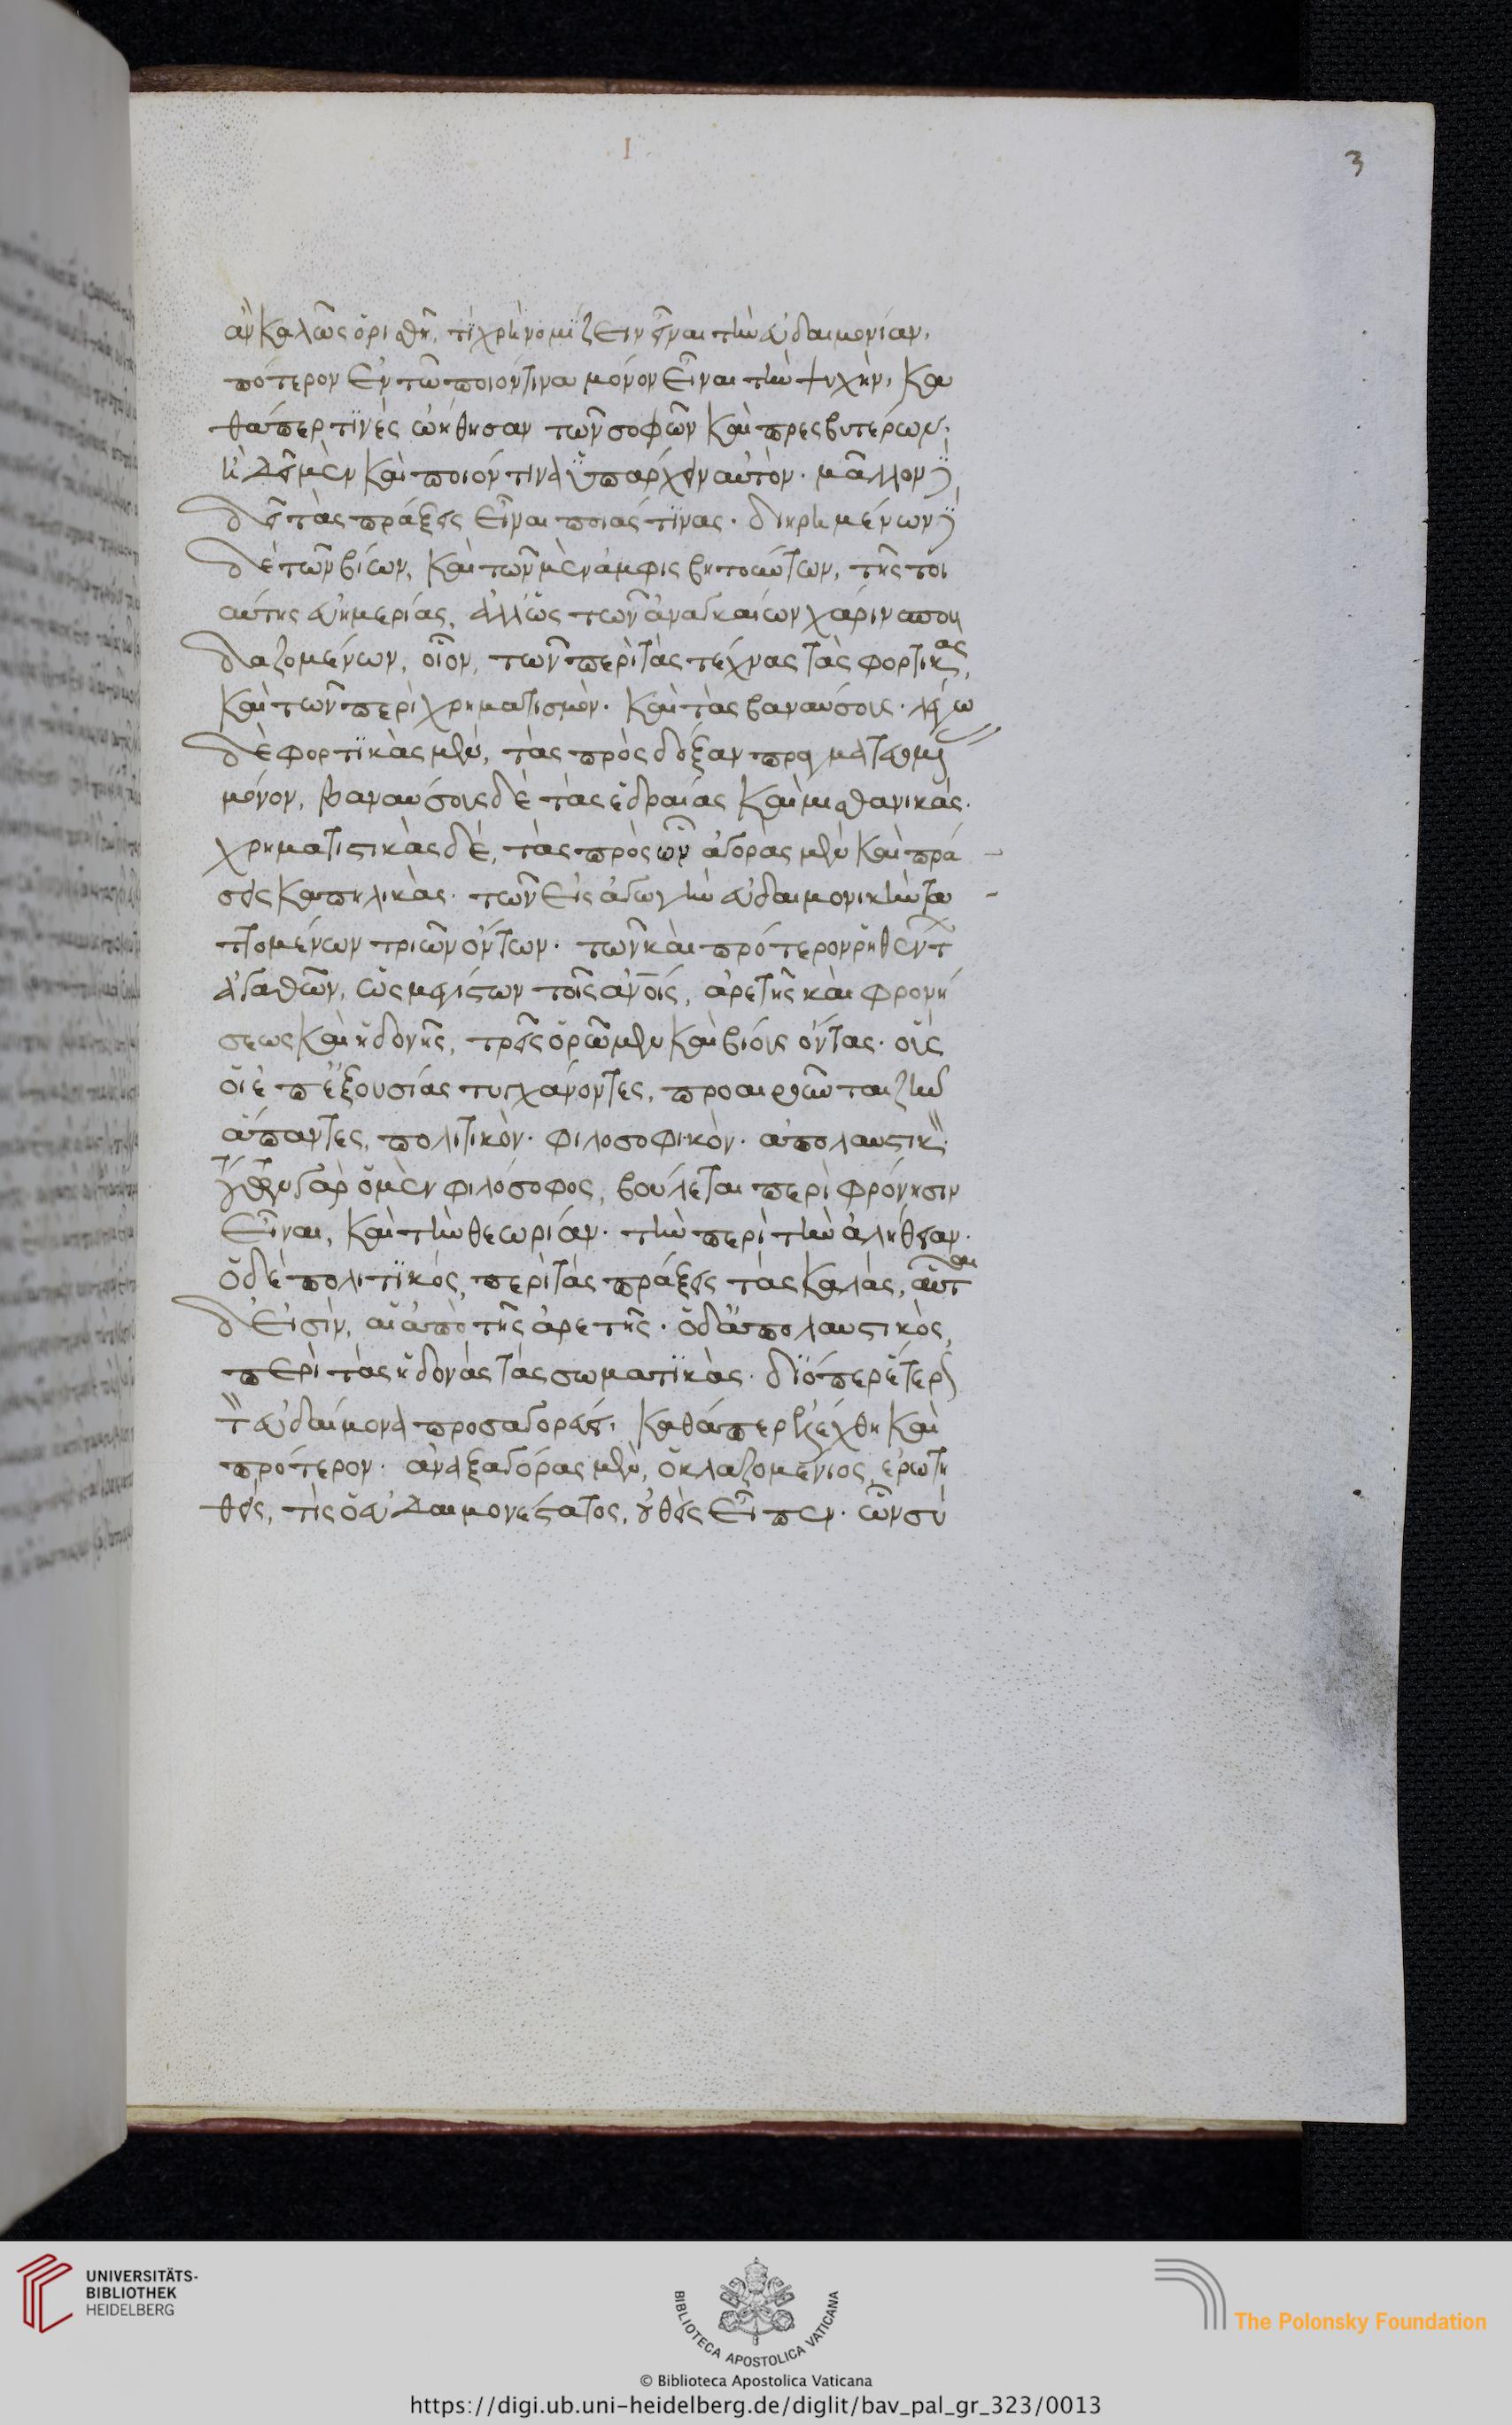 I
3
ἂν καλῶς ὁρισθῇ, τί χρὴ νομίζειν εἶναι τὴν εὐδαιμονίαν,
πότερον ἐν τῶ ποιόν τινα μόνον εἶναι τὴν ψυχὴν, κα
θάπερ τινὲς ὠήθησαν τῶν σοφῶν καὶ πρεσβυτέρων.
ἢ δεῖ μὲν καὶ ποιόν τινα ὑπάρχειν αὐτὸν. μᾶλλον
δεῖ τὰς πράξεις εἶναι ποιάς τινας. διηρημένων
δὲ τῶν βίων, καὶ τῶν μὲν ἀμφισβητούντων, τῆς τοι
αύτης εὐημερίας, ἀλλ' ὡς τῶν ἀναγκαίων χάριν σπου
δαζομένων, οἷον, τῶν περὶ τὰς τέχνας τὰς φορτικάς,
καὶ τῶν περὶ χρηματισμὸν. καὶ τὰς βαναύσους. λέγω
δὲ φορτικὰς μὲν, τὰς πρὸς δόξαν πραγματευομένας
μόνον, βαναύσους δὲ τὰς ἑδραίας καὶ μισθαρνικάς.
χρηματιστικὰς δὲ, τὰς πρὸς ὠνὰς ἀγορὰς μὲν καὶ πρά
σεις καπηλικὰς. τῶν εἰς ἀγωγὴν εὐδαιμονικὴν τα
ττομένων τριῶν ὄντων. τῶν καὶ πρότερον ῥηθέντων
ἀγαθῶν, ὡς μεγίστων τοῖς ἀνοις, ἀρετῆς καὶ φρονή
σεως καὶ ἡδονῆς, τρεῖς ὁρῶμεν καὶ βίους ὄντας. οὓς
οἱ ἐπ' ἐξουσίας τυγχάνοντες, προαιροῦνται ζῆν
ἅπαντες, πολιτικὸν. φιλοσοφικὸν. ἀπολαυστικὸν.
τούτων γὰρ ὁ μὲν φιλόσοφος, βούλεται περὶ φρόνησιν
εἶναι, καὶ τὴν θεωρίαν. τὴν περὶ τὴν ἀλήθειαν.
ὁ δὲ πολιτικός, περὶ τὰς πράξεις τὰς καλάς, αὗται
δ' εἰσὶν, αἱ ἀπὸ τῆς ἀρετῆς. ὁ δ' ἀπολαυστικὸς,
περὶ τὰς ἡδονὰς τὰς σωματικὰς. διόπερ ἕτερος
τὸν εὐδαίμονα προσαγορεύει, καθάπερ ἐλέχθη καὶ
πρότερον. ἀναξαγόρας μὲν, ὁ κλαζομένιος, ἐρωτη
θεὶς, τίς ὁ εὐδαιμονέστατος, οὐθεὶς εἶπεν. ὧν σὺ
UNIVERSITÄTS-
BIBLIOTHEK
HEIDELBERG
BIBLIOTECA APOSTOLICA VATICANA
The Polonsky Foundation
© Biblioteca Apostolica Vaticana
https://digi.ub.uni-heidelberg.de/diglit/bav_pal_gr_323/0013